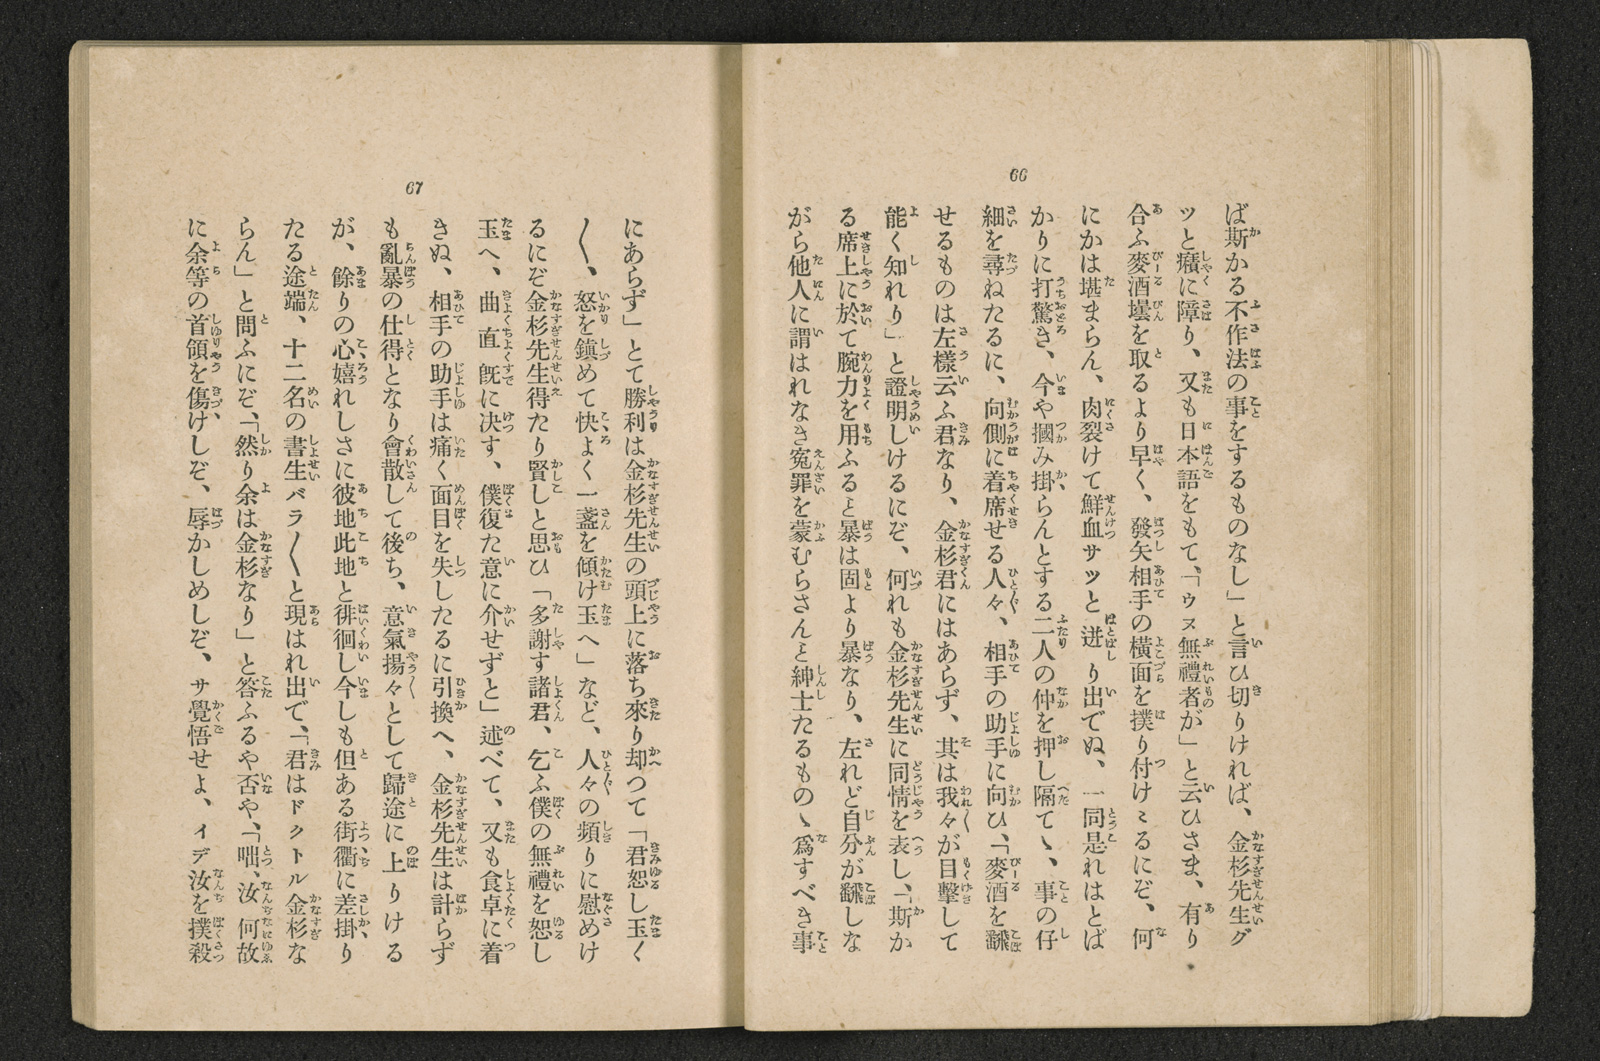 66
ば斯かる不作法の事をするものなし」と言ひ切りければ、金杉先生グ
ツと癪に障り、又も日本語をもて、「ウヌ無禮者が」と云ひさま、有り
合ふ麥酒壜を取るより早く、發矢相手の橫面を撲り付けゝるにぞ、何
にかは堪まらん、肉裂けて鮮血サッと迸り出でぬ、一同是れはとば
かりに打驚き、今や摑み掛らんとする二人の仲を押し隔てゝ、事の仔
細を尋ねたるに、向側に着席せる人々、相手の助手に向ひ、「麥酒を飜
せるものは左樣云ふ君なり、金杉君にはあらず、其は我々が目擊して
能く知れり」と證明しけるにぞ、何れも金杉先生に同情を表し、「斯か
る席上に於て腕力を用ふると暴は固より暴なり、左れど自分が飜しな
がら他人に謂はれなき寃罪を蒙むらさんと紳士たるものゝ爲すべき事
67
にあらず」とて勝利は金杉先生の頭上に落ち來り却つて「君恕し玉く
〱、怒を鎭めて快よく一盞を傾け玉へ」など、人々の頻りに慰めけ
るにぞ金杉先生得たり賢しと思ひ「多謝す諸君、乞ふ僕の無禮を恕し
玉へ、曲直旣に决す、僕復た意に介せずと」述べて、又も食卓に着
きぬ、相手の助手は痛く面目を失したるに引換へ、金杉先生は計らず
も亂暴の仕得となり會散して後ち、意氣揚々として歸途に上りける
が、餘りの心嬉れしさに彼地此地と徘徊し今しも但ある街衢に差掛り
たる途端、十二名の書生バラ〱と現はれ出で、「君はドクトル金杉な
らん」と問ふにぞ、「然り余は金杉なり」と答ふるや否や、「咄、汝何故
に余等の首領を傷けしぞ、辱かしめしぞ、サ覺悟せよ、イデ汝を撲殺